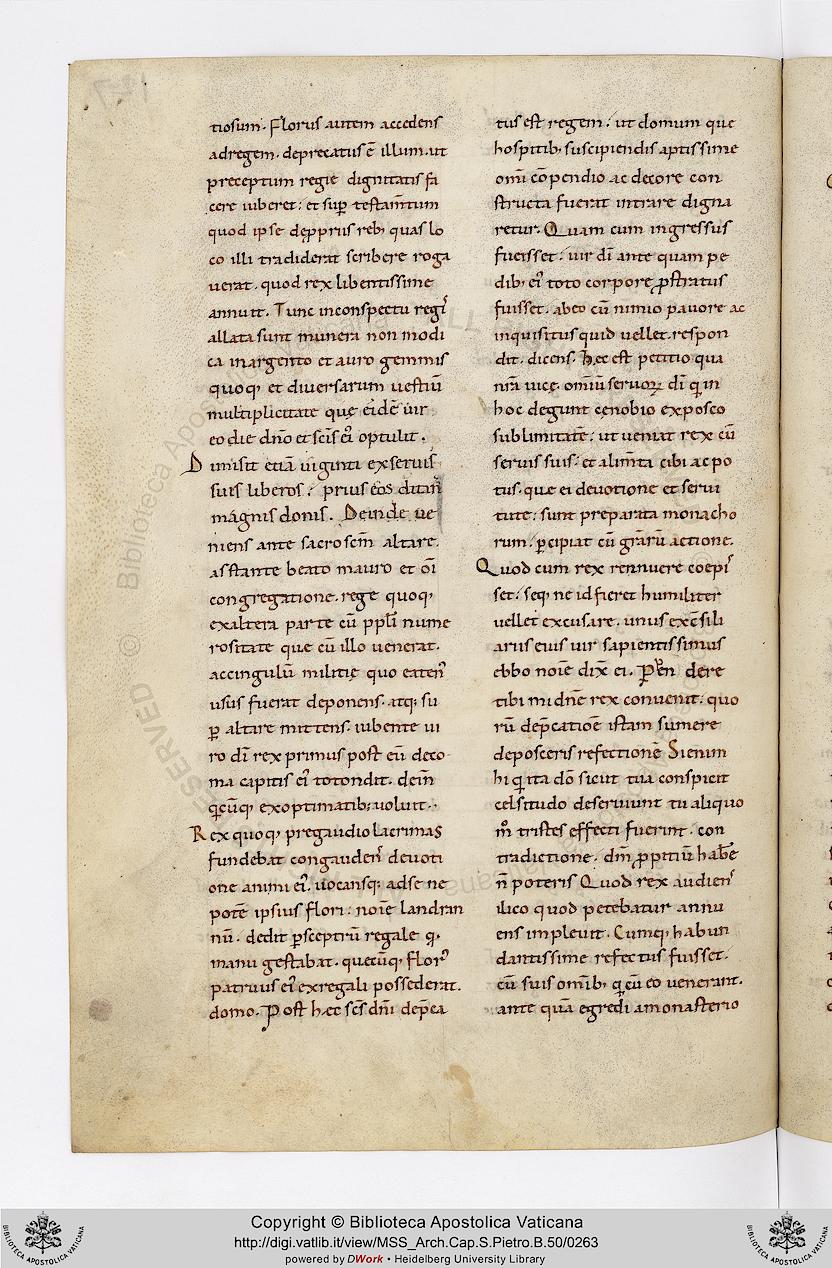 tiosum. Florus autem accedens
ad regem. deprecatus ē illum. ut
preceptum regie dignitatis fa
cere iuberet; et sup̄ testam̄tum
quod ipse de p̱priis reb; quas lo
co illi tradiderat scribere roga
uerat. quod rex libentissime
annuit. Tunc inconspectu regꝭ
allata sunt munera non modi
ca inargento et auro gemmis
quoq; et diuersarum uestiū
multiplicitate que eidē uir
eo die dn̄o et sc̄is eꝰ optulit.
Dimisit etiā uiginti exseruis
suis liberos; prius eos ditan̄
magnis donis. Deinde ue
niens ante sacrosc̄m altare.
asstante beato mauro et om̄i
congregatione. rege quoq;
exaltera parte cū pp̄li nume
rositate que cū illo uenerat.
accingulū militię quo eaten̄
usus fuerat deponens. atq; su
ꝑ altare mittens. iubente ui
ro dī rex primus post eū deco
ma capitis eꝰ totondit. dein̄
qcūq; exoptimatib; uoluit.
Rex quoq; pregaudio lacrimas
fundebat congauden̄ deuoti
one animi eꝰ. uocansq; adse ne
potē ipsius flori. noīe landran
nū. dedit ꝑsceptrū regale q.
manu gestabat. quecūq; florꝰ
patruus eꝰ exregali possederat.
domo. Post hec sc̄s dn̄i dep̄ca
tus est regem; ut domum que
hospitib; suscipiendis aptissime
om̄i cōpendio ac decore con
structa fuerat intrare digna
retur. Quam cum ingressus
fuisset; uir dī ante quam pe
dib; eꝰ toto corpore ꝓstratus
fuisset. abeo cū nimio pauore ac
inquisitus quid uellet. respon
dit. dicens. Hec est petitio qua
nr̄a uice. omiū seruorꝝ dī q in
hoc degunt cenobio exposco
sublimitatē; ut ueniat rex cū
seruis suis; et alim̄ta cibi ac po
tus. que ei deuotione et serui
tute; sunt preparata monacho
rum. ꝑcipiat cū gr̄arū actione.
Quod cum rex rennuere coepiꝭ
set; seq; ne id fieret humiliter
uellet excusare. unus ex c̄sili
ariis eius uir sapientissimus
ebbo noīe dix̄ ei. dere
tibi mi dn̄e rex conuenit. quo
rū dep̄catioē istam sumere
deposceris refectionē Si enim
hi q ita dō sicut tua conspicit
celsitudo deseruiunt tu aliquo
m̄ tristes effecti fuerint. con
tradictione. dn̄m ꝓpitiū habe
n̄ poteris Quod rex audien̄
ilico quod petebatur annu
ens impleuit. Cumq; habun
dantissime refectus fuisset.
cū suis omīb; q cū eo uenerant.
ante quā egredi amonasterio
Copyright © Biblioteca Apostolica Vaticana
http://digi.vatlib.it/view/MSS_Arch.Cap.S.Pietro.B.50/0263
powered by DWork • Heidelberg University Library